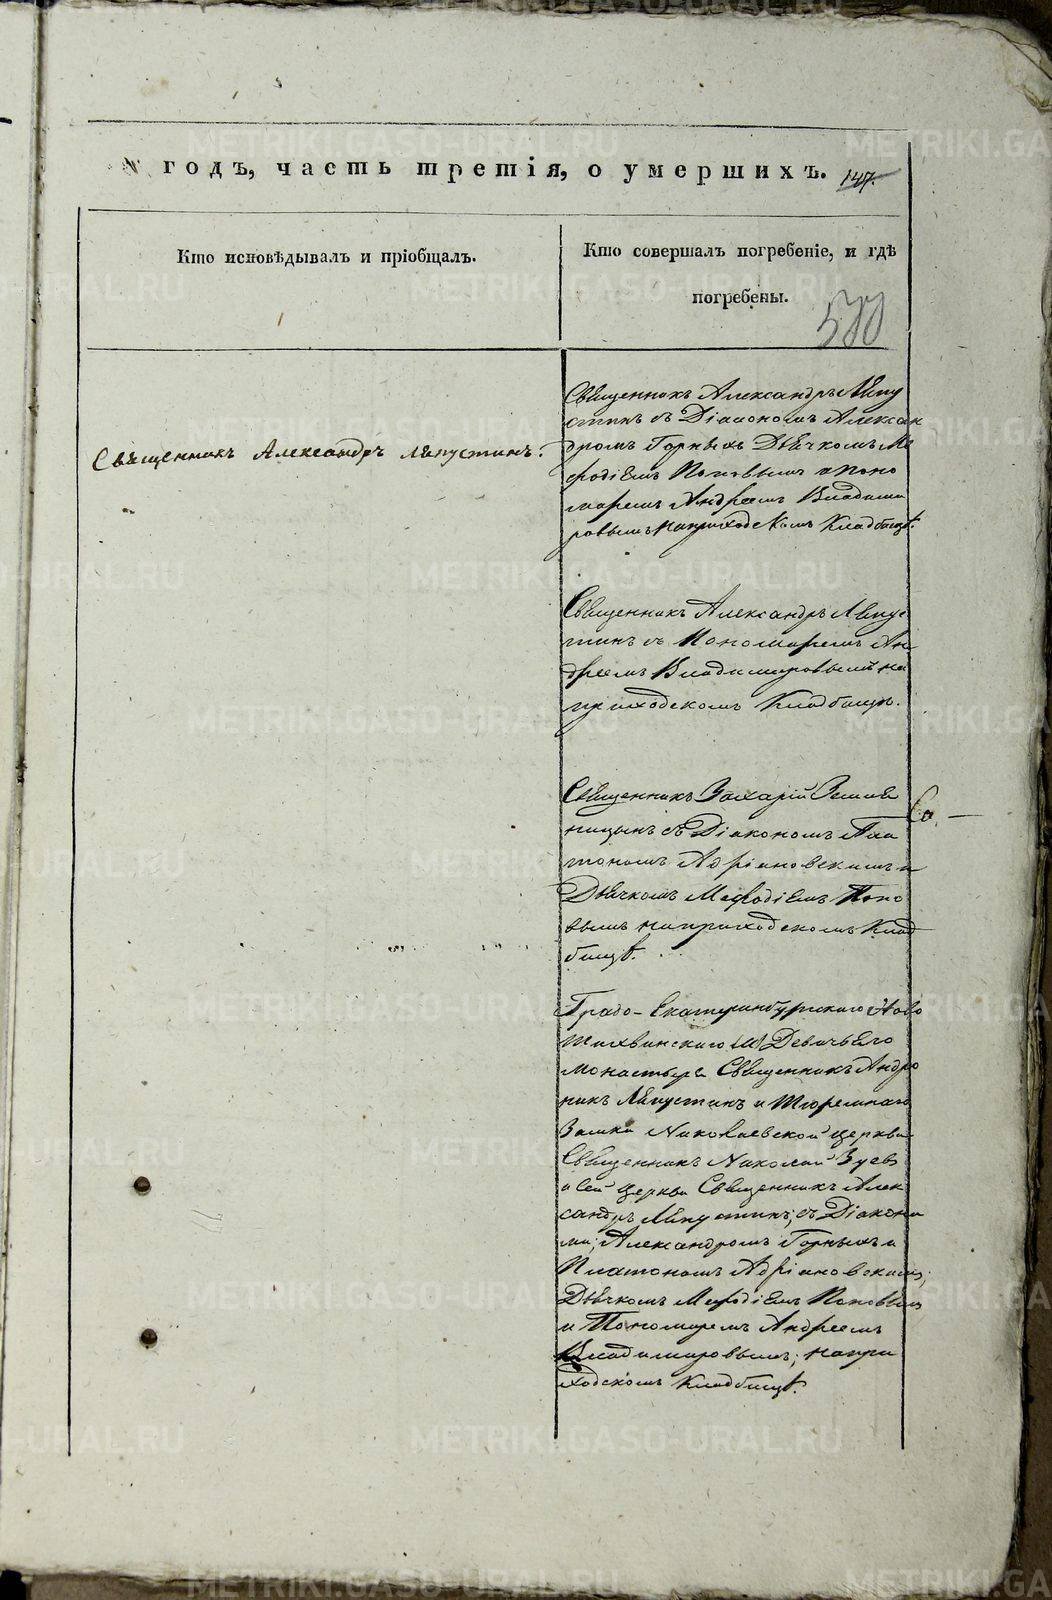 годъ, часть третія, о умершихъ. 147.
Кто исповѣдывалъ и пріобщалъ.
Кто совершалъ погребеніе, и гдѣ
погребены.
Священникъ Александръ Лѣпустинъ.
Священникъ Александръ Лѣпу
стинъ съ Діакономъ Алексан
дромъ Горныхъ Дьячкомъ Ме
фодіемъ Поповымъ и Поно
маремъ Андреемъ Владими
ровымъ на приходскомъ Кладбищѣ.
Священникъ Александръ Лѣпус
тинъ съ Пономаремъ Ан
дреемъ Владимировымъ на
приходскомъ Кладбищѣ.
Священникъ Захарій Земля
ницынъ съ Діакономъ Пла
тономъ Адріановскимъ и
Дьячкомъ Мефодіемъ Попо
вымъ на приходскомъ Клад
бищѣ.
Градо-Екатеринбургскаго Ново
Тихвинскаго Девичьего
монастыря Священникъ Андро
никъ Лѣпустинъ и Тюремнаго
Замка Николаевской церкви
Священникъ Николай Зуевъ
и сей церкви Священникъ Алек
сандръ Лѣпустинъ; съ Діакона
ми; Александромъ Горныхъ и
Платономъ Адріановскимъ;
Дьячкомъ Мефодіемъ Поповымъ
и Пономаремъ Андреемъ
Владимировымъ; на при
ходскомъ Кладбищѣ.
METRIKI.GASO-URAL.RU